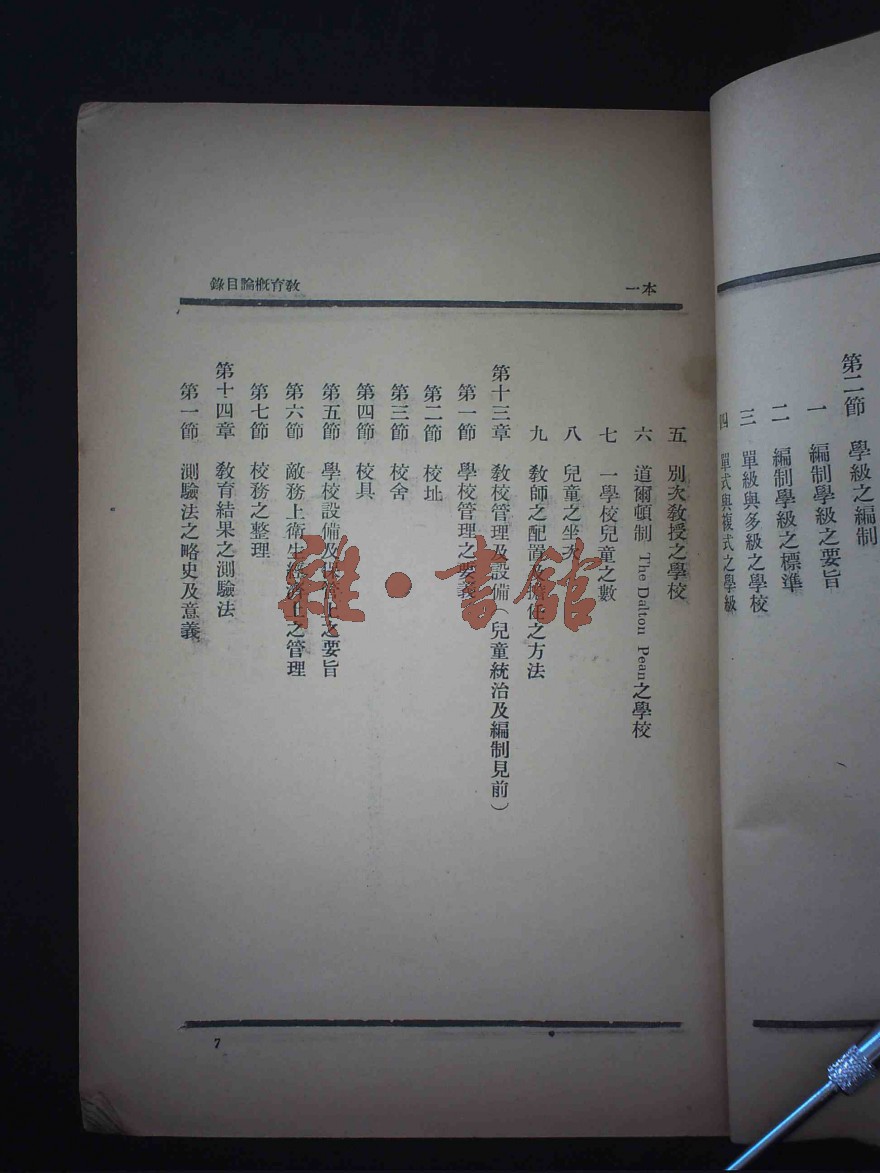 第二節　學級之編制
一　編制學級之要旨
二　編制學級之標準
三　單級與多級之學校
四　單式與複式之學級
本一
教育概論目錄
五　別次教授之學校
六　道爾頓制 The Dalton Pean之學校
七　一學校兒童之數
八　兒童之坐次
九　教師之配置及擔任之方法
第十三章　教校管理及設備　兒童統治及編制見前）
第一節　學校管理之要義
第二節　校址
第三節　校舍
第四節　校具
第五節　學校設備及 上之要旨
第六節　敵務上衛生經濟上之管理
第七節　校務之整理
第十四章　教育結果之測驗法
第一節　測驗法之略史及意義
7
雜·書館